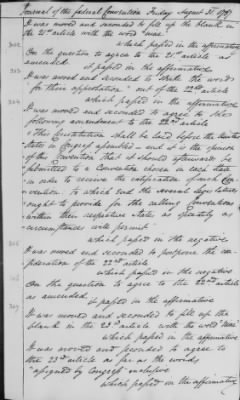 Journal of the federal Convention Friday August 31. 1787
It was moved and seconded to fill up the blank in
the 21st article with the word "nine"
which passed in the affirmative
On the question to agree to the 21st article as
amended. it passed in the affirmative
It was moved and seconded to strike the words
"for their approbation" out of the 22nd article
which passed in the affirmative
It was moved and seconded to agree to the
following amendment to the 22nd article
"This Constitution shall be laid before the United
States in Congress assembled — and it is the opinion
of the Convention that it should afterwards be
submitted to a Convention chosen in each State
in order to receive the ratification of such Con-
vention. To which end the several legislatures
ought to provide for the calling Conventions
within their respective States as speedily as
circumstances will permit
which passed in the negative
It was moved and seconded to postpone the con-
sideration of the 22nd article
which passed in the negative
On the question to agree to the 22nd article
as amended, it passed in the affirmative
It was moved and seconded to fill up the
blank in the 23rd article with the word "nine"
which passed in the affirmative
It was moved and seconded to agree to
the 23rd article as far as the words
"assigned by Congress" inclusive
which passed in the affirmative